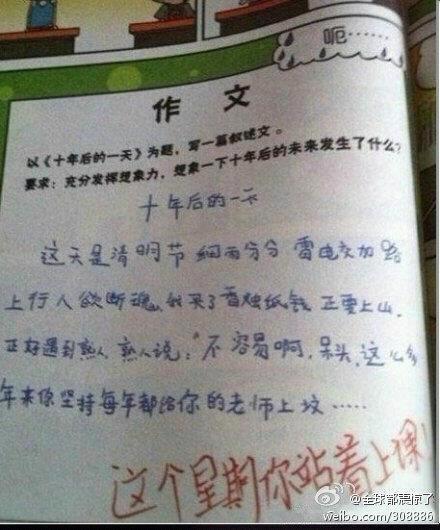 呃……
作文
以《十年后的一天》为题，写一篇叙述文。
要求：充分发挥想象力，想象一下十年后的未来发生了什么？
十年后的一天
这天是清明节 细雨分分 雷电交加 路
上行人欲断魂，我买了香烛纸钱 正要上山，
正好遇到熟人，熟人说："不容易啊，呆头，这么多
年来你坚持每年都给你的老师上坟……
这个星期你站着上课!
@全球都震惊了
weibo.com/308886